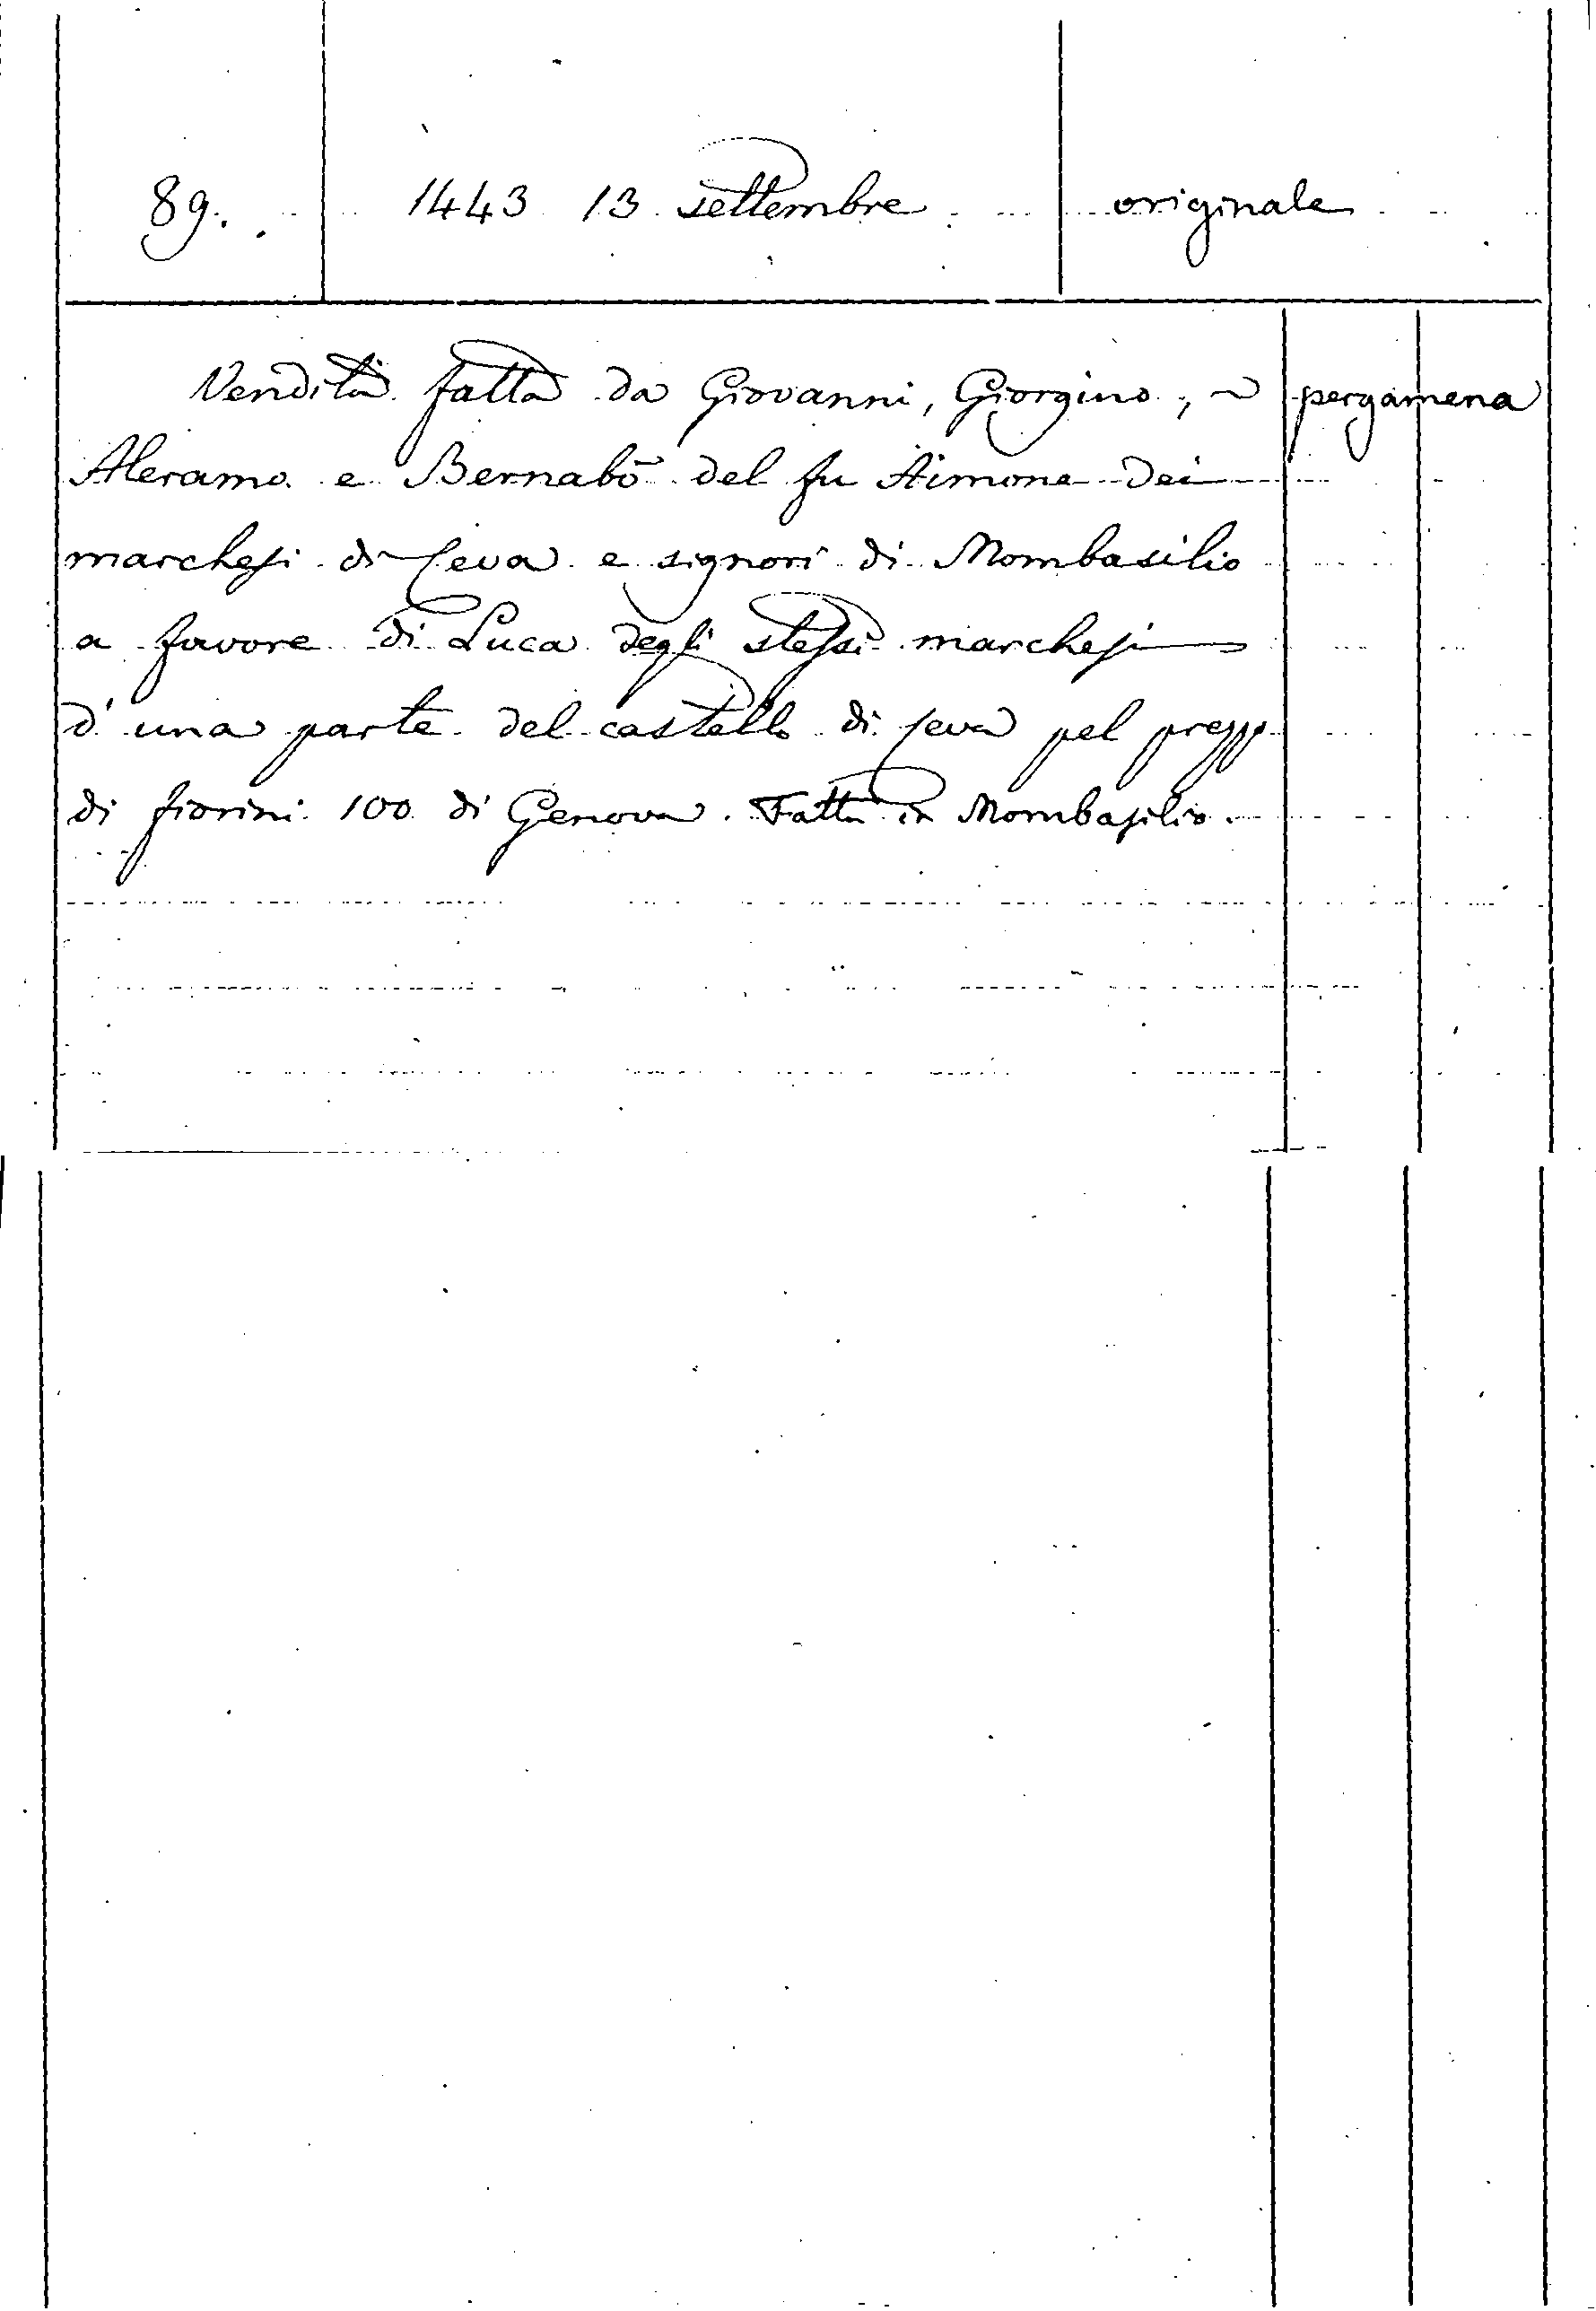 89. 1443 13 settembre originale
Vendita fatta da Giovanni, Giorgino, ~ pergamena
Aleramo e Bernabò del fu Aimone dei
marchesi di Ceva e signori di Mombasilio
a favore di Luca degli stessi marchesi
d'una parte del castello di Ceva pel prezzo
di fiorini 100 di Genova. Fatta in Mombasilio.